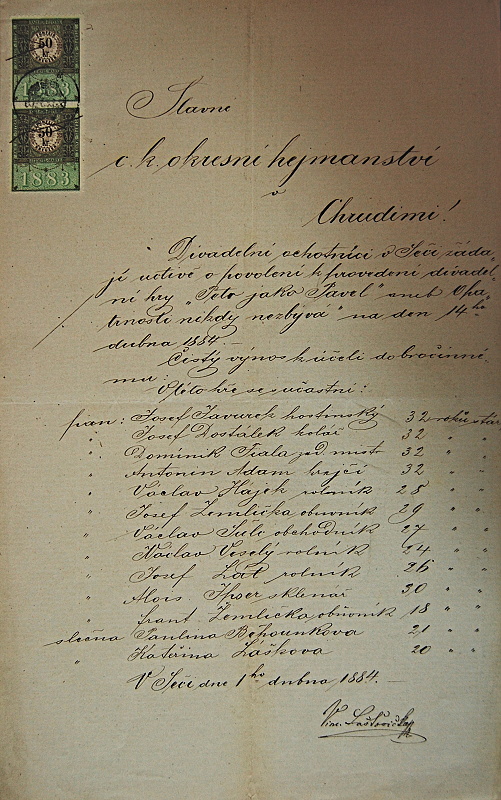 50
kr
1883
50
kr
1883
Slavné
c. k. okresní hejmanství
v
Chrudimi!
Divadelní ochotníci v Seči žáda„
jí uctivě o povolení k provedení divadel„
ní hry „Peto jako Pavel“ aneb Opa„
trnosti nikdy nezbývá“ na den 14ho
dubna 1884.—
Čistý výnos k účeli dobročinné„
mu:
V této hře se súčastní:
pan: Josef Javurek hostinský 32 roků stár
„ Josef Dostálek kolář 32 „ „
„ Dominik Fiala 32 „ „
„ Antonín Adam krejčí 32 „ „
„ Václav Hájek rolník 28 „ „
„ Josef Zemlička obuvník 29 „ „
„ Václav Šulc obchodník 27 „ „
„ Václav Veselý rolník 24 „ „
„ Josef rolník 26 „ „
„ Alois sklenář 30 „ „
„ frant. Zemlička obuvník 18 „ „
slečna Paulina Běhounkova 21 „ „
„ Kateřina Laškova 20 „ „
V Seči dne 1ho dubna 1884.—